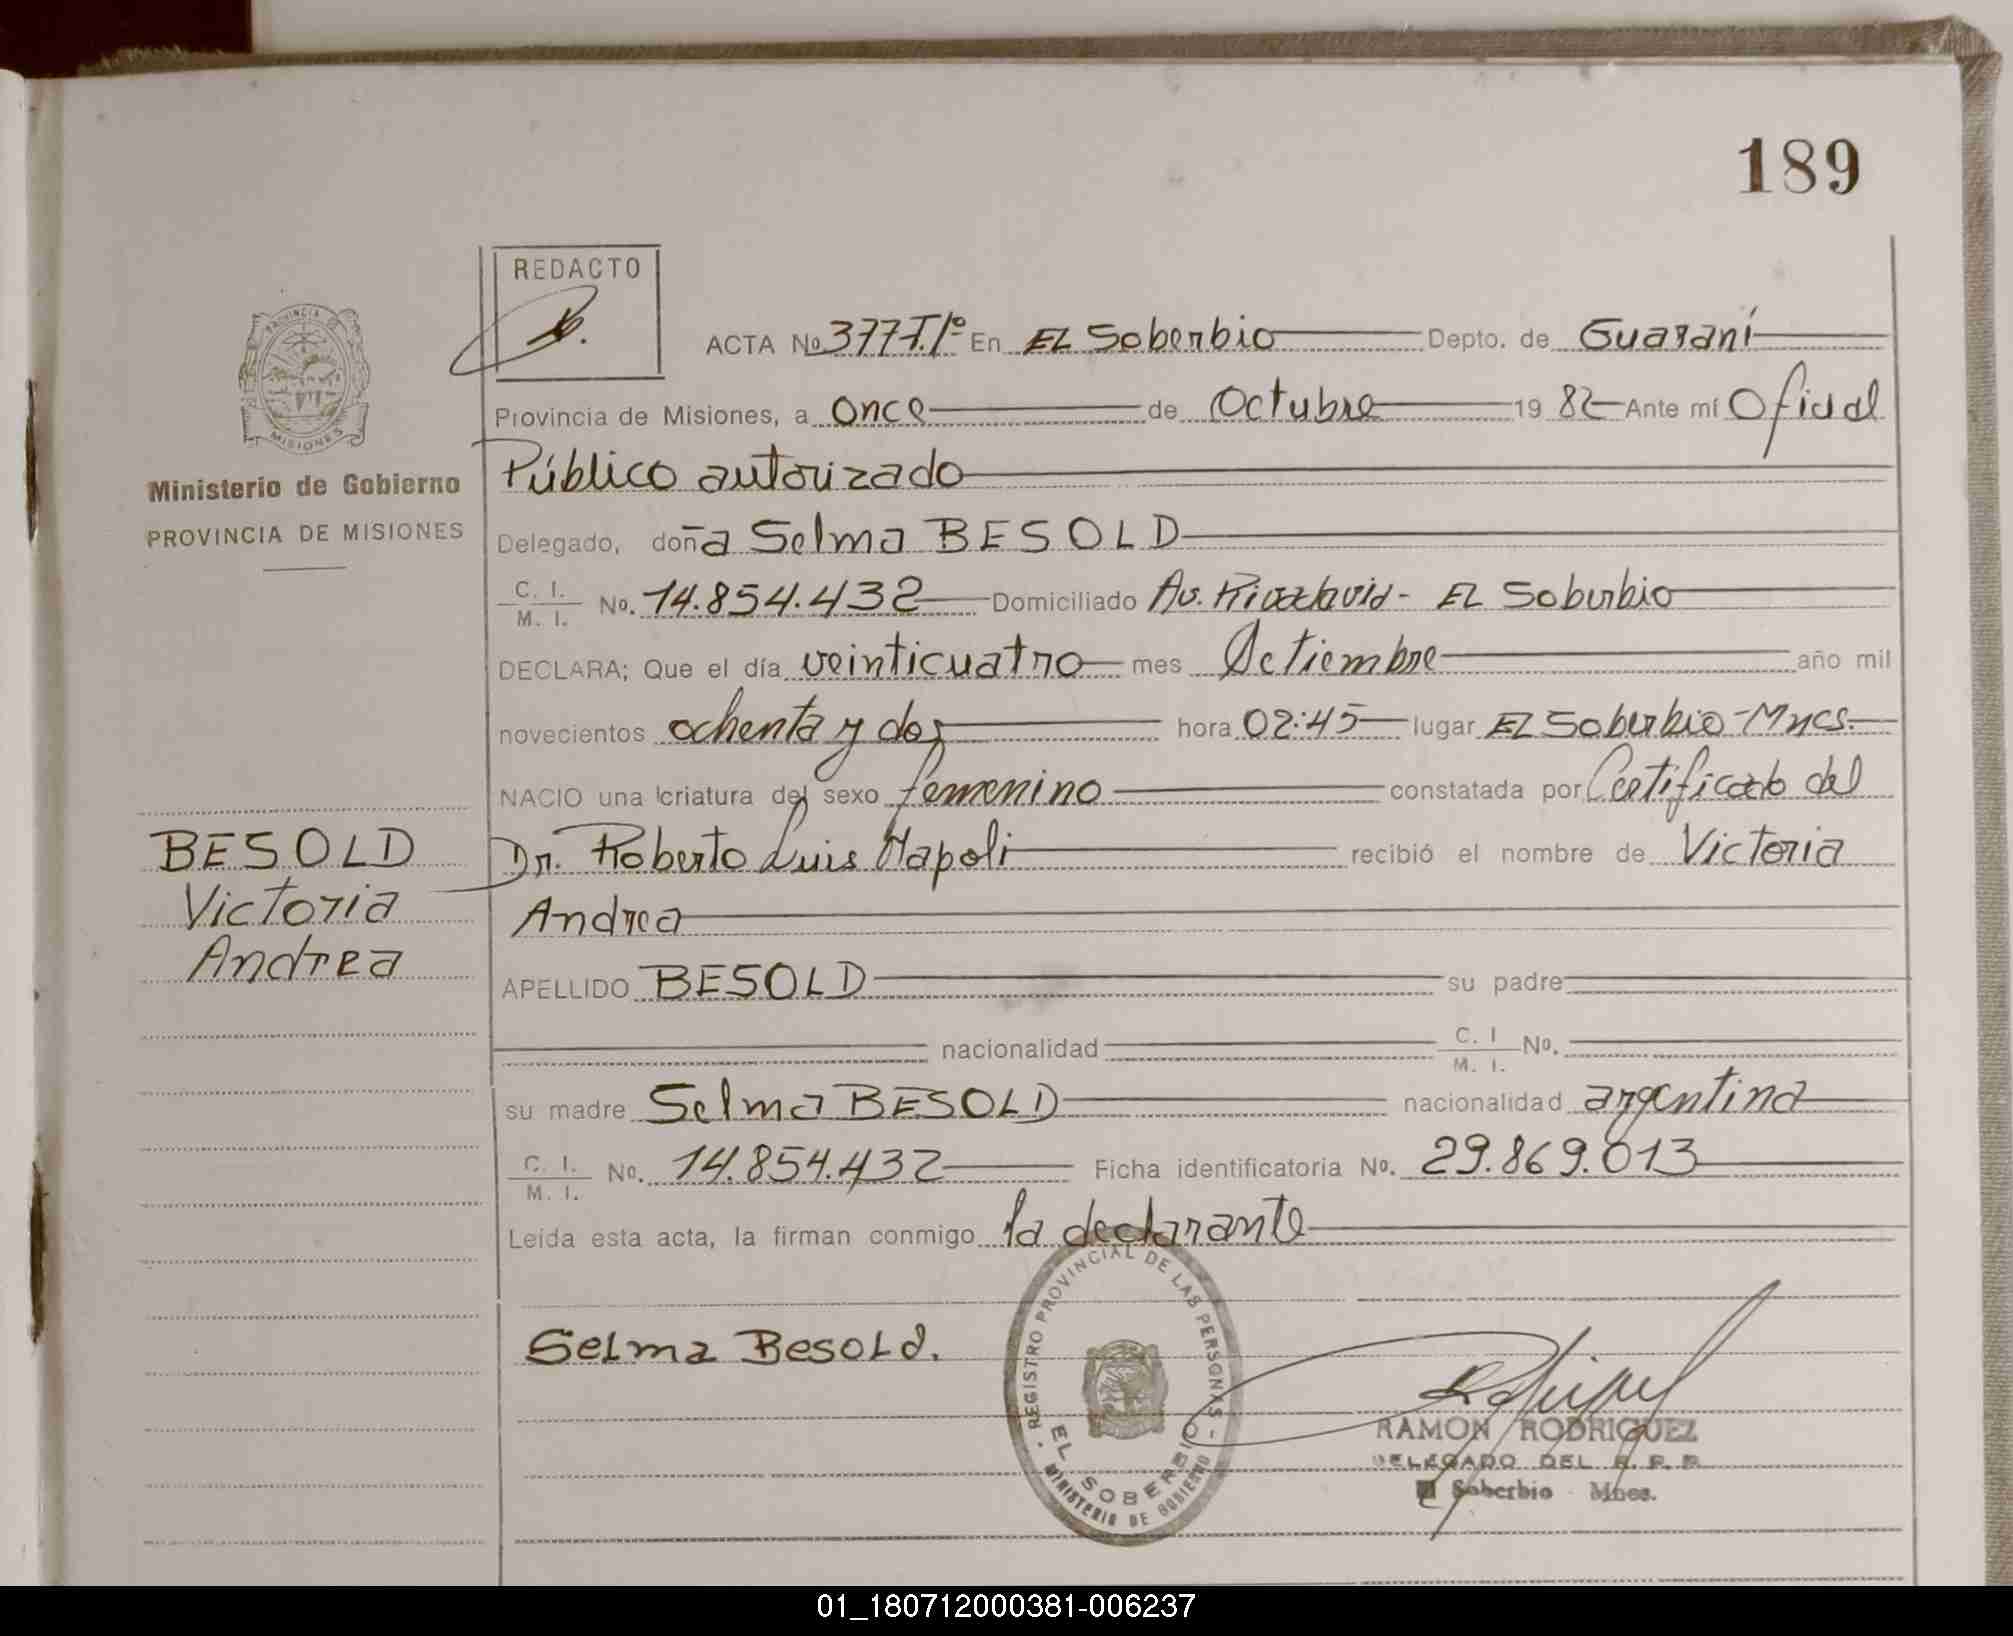 189
REDACTO
PROVINCIA
MISIONES
Ministerio de Gobierno
PROVINCIA DE MISIONES
ACTA No 377 T.1º En EL Soberbio Depto. de Guaraní
Provincia de Misiones, a once de Octubre 19 82 Ante mí Oficial
Público autorizado
Delegado, doña Selma BESOLD
C. I. / M. I. No. 14.854.432 Domiciliado Av. Rivadavia - EL Soberbio
DECLARA; Que el día veinticuatro mes Setiembre año mil
novecientos ochenta y dos hora 02:45 lugar EL Soberbio - Mnes.
NACIO una criatura del sexo femenino constatada por Certificado del
Dr. Roberto Luis Napoli recibió el nombre de Victoria
Andrea
APELLIDO BESOLD su padre
nacionalidad C. I / M. I. No.
su madre Selma BESOLD nacionalidad argentina
C. I. / M. I. No. 14.854.432 Ficha identificatoria No. 29.869.013
Leída esta acta, la firman conmigo la declarante
BESOLD
Victoria
Andrea
Selma Besold.
REGISTRO PROVINCIAL DE LAS PERSONAS
EL SOBERBIO
MINISTERIO DE GOBIERNO
RAMON RODRIGUEZ
DELEGADO DEL R. P. P.
El Soberbio - Mnes.
01_180712000381-006237